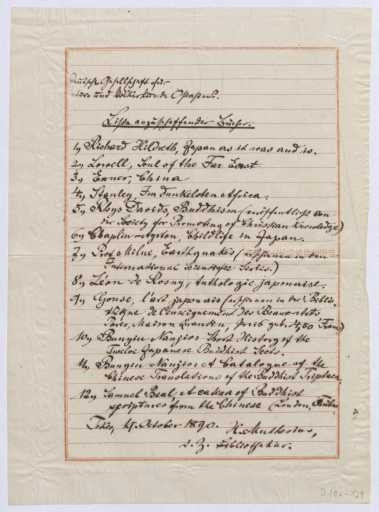 Deutsche Gesellschaft für
Natur und Völkerkunde Ostasiens.
Liste anzuschaffender Bücher.
1) Richard Hildreth, Japan as it was and is.
2) Lowell, Soul of the Far East
3) Exner, China
4) Stanley, Im dunkelsten Africa.
5) Rhys Davids, Buddhism (veröffentlicht von
der Society for Promoting of Christian Knowledge)
6) Chaplin-Ayrton, Childlife in Japan.
7) Prof. Milne, Earthquakes, (erschienen in den
International scientific Series.)
8) Léon de Rosny, Anthologie japonaise.
9) Gonse, l'art japonais (erschienen in der Biblio-
thèque de l'enseignement des Beaux-Arts
Paris, Maison Quantin, Preis geb. 4,50 Francs)
10) Bunyiu Nanjio Short History of the
Twelve Japanese Buddhist Sects.
11) Bunyiu Nanjio A Catalogue of the
Chinese Translations of the Buddhist Tripitaca,
12) Samuel Beal, A catena of Buddhist
scriptures from the Chinese (London,
Tokio, October 1890.
d. Z. Bibliothekar.